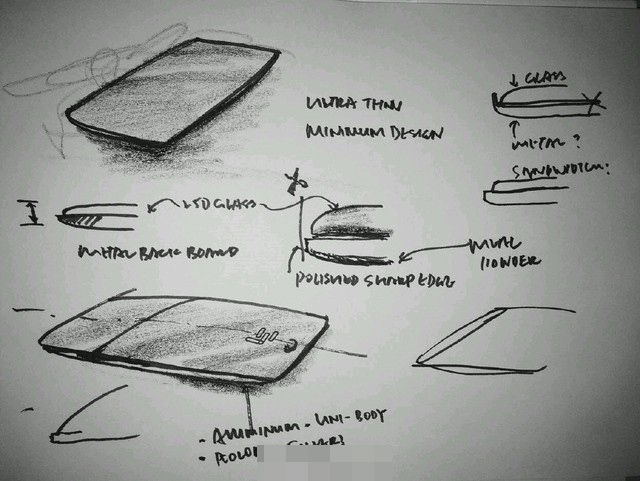 ULTRA THIN
MINIMUM DESIGN
GLASS
METAL?
SANDWITCH?
2.5D GLASS
METAL BACK BOARD
POLISHED SHARP EDGE
METAL
POWDER
- ALUMINUM - UNI-BODY